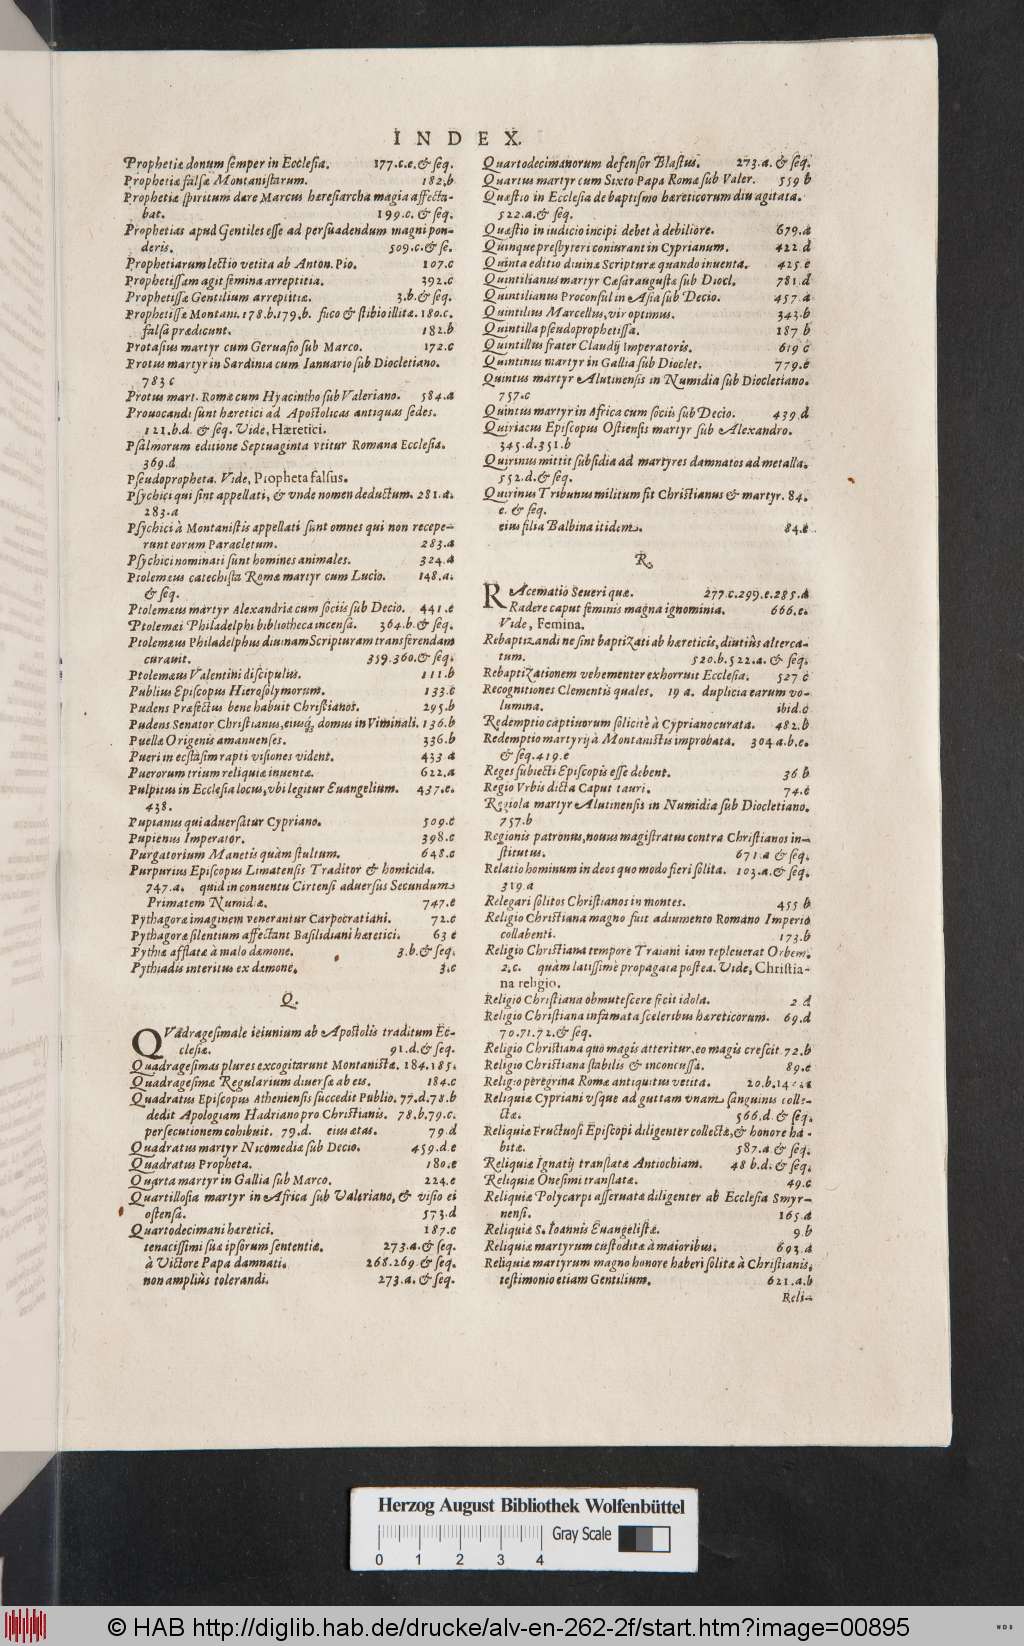 INDEX.
Prophetiæ donum semper in Ecclesia. 177.c.e.& seq.
Prophetiæ falsæ Montanistarum. 182.b
Prophetiæ spiritum dare Marcus hæresiarcha magia affecta-
bat. 199.c. & seq.
Prophetias apud Gentiles esse ad persuadendum magni pon-
deris. 509.c.& se.
Prophetiarum lectio vetita ab Anton. Pio. 107.c
Prophetissam agit femina arreptitia. 392.c
Prophetissæ Gentilium arreptitiæ. 3.b.& seq.
Prophetissæ Montani. 178.b.179.b. fuco & stibio illitæ. 180.c.
falsa prædicunt. 182.b
Protasius martyr cum Geruasio sub Marco. 172.c
Protus martyr in Sardinia cum Ianuario sub Diocletiano.
783 c
Protus mart. Romæ cum Hyacintho sub Valeriano. 584.a
Prouocandi sunt hæretici ad Apostolicas antiquas sedes.
121.b.d. & seq. Vide, Hæretici.
Psalmorum editione Septuaginta vtitur Romana Ecclesia.
369.d
Pseudopropheta. Vide, Propheta falsus.
Psychici qui sint appellati, & vnde nomen deductum. 281.a.
283.a
Psychici à Montanistis appellati sunt omnes qui non recepe-
runt eorum Paracletum. 283.a
Psychici nominati sunt homines animales. 324.a
Ptolemæus catechista Romæ martyr cum Lucio. 148.a.
& seq.
Ptolemæus martyr Alexandriæ cum sociis sub Decio. 441.e
Ptolemæi Philadelphi bibliotheca incensa. 364.b.& seq.
Ptolemæus Philadelphus diuinam Scripturam transferendam
curauit. 359.360.& seq.
Ptolemæus Valentini discipulus. 111.b
Publius Episcopus Hierosolymorum. 133.c
Pudens Præfectus bene habuit Christianos. 295.b
Pudens Senator Christianus, eiusq; domus in Viminali. 136.b
Puellæ Origenis amanuenses. 336.b
Pueri in ecstasim rapti visiones vident. 433 a
Puerorum trium reliquiæ inuentæ. 622.a
Pulpitus in Ecclesia locus, vbi legitur Euangelium. 437.e.
438.
Pupianus qui aduersatur Cypriano. 509.e
Pupienus Imperator. 398.c
Purgatorium Manetis quàm stultum. 648.c
Purpurius Episcopus Limatensis Traditor & homicida.
747.a. quid in conuentu Cirtensi aduersus Secundum
Primatem Numidiæ. 747.e
Pythagoræ imaginem venerantur Carpocratiani. 72.c
Pythagoræ silentium affectant Basilidiani hæretici. 63 e
Pythiæ afflatæ à malo dæmone. 3.b.& seq.
Pythiadis interitus ex dæmone. 3.c
Q.
QVadragesimale ieiunium ab Apostolis traditum Ec-
clesiæ. 91.d.& seq.
Quadragesimas plures excogitarunt Montanistæ. 184.185.
Quadragesimæ Regularium diuersæ ab eis. 184.c
Quadratus Episcopus Atheniensis succedit Publio. 77.d.78.b
dedit Apologiam Hadriano pro Christianis. 78.b.79.c.
persecutionem cohibuit. 79.d. eius ætas. 79 d
Quadratus martyr Nicomediæ sub Decio. 459.d.e
Quadratus Propheta. 180.e
Quarta martyr in Gallia sub Marco. 224.e
Quartillosia martyr in Africa sub Valeriano, & visio ei
ostensa. 573.d
Quartodecimani hæretici. 187.c
tenacissimi suæ ipsorum sententiæ. 273.a.& seq.
à Victore Papa damnati. 268.269.& seq.
non ampliùs tolerandi. 273.a. & seq.
Quartodecimanorum defensor Blastus. 273.a. & seq.
Quartus martyr cum Sixto Papa Romæ sub Valer. 559 b
Quæstio in Ecclesia de baptismo hæreticorum diu agitata.
522.a.& seq.
Quæstio in iudicio incipi debet à debiliore. 679.a
Quinque presbyteri coniurant in Cyprianum. 422 d
Quinta editio diuinæ Scripturæ quando inuenta. 425.e
Quintilianus martyr Cæsaraugustæ sub Diocl. 781.d
Quintilianus Proconsul in Asia sub Decio. 457.a
Quintilius Marcellus, vir optimus. 343.b
Quintilla pseudoprophetissa. 187 b
Quintillus frater Claudij Imperatoris. 619 c
Quintinus martyr in Gallia sub Dioclet. 779.e
Quintus martyr Alutinensis in Numidia sub Diocletiano.
757.c
Quintus martyr in Africa cum sociis sub Decio. 439.d
Quiriacus Episcopus Ostiensis martyr sub Alexandro.
345.d.351.b
Quirinus mittit subsidia ad martyres damnatos ad metalla.
552.d.& seq.
Quirinus Tribunus militum fit Christianus & martyr. 84.
e. & seq.
eius filia Balbina itidem. 84.e
R.
RAcematio Seueri quæ. 277.c.299.e.285.a
Radere caput feminis magna ignominia. 666.e.
Vide, Femina.
Rebaptizandi ne sint baptizati ab hæreticis, diutiùs alterca-
tum. 520.b.522.a. & seq.
Rebaptizationem vehementer exhorruit Ecclesia. 527 c
Recognitiones Clementis quales. 19 a. duplicia earum vo-
lumina. ibid.c
Redemptio captiuorum solicitè à Cypriano curata. 482.b
Redemptio martyrij à Montanistis improbata. 304 a.b.e.
& seq.419.e
Reges subiecti Episcopis esse debent. 36.b
Regio Vrbis dicta Caput tauri. 74.e
Regiola martyr Alutinensis in Numidia sub Diocletiano.
757.b
Regionis patronus, nouus magistratus contra Christianos in-
stitutus. 671.a & seq.
Relatio hominum in deos quo modo fieri solita. 103.a.& seq.
319.a
Relegari solitos Christianos in montes. 455 b
Religio Christiana magno fuit adiumento Romano Imperio
collabenti. 173.b
Religio Christiana tempore Traiani iam repleuerat Orbem.
2.c. quàm latissimè propagata postea. Vide, Christia-
na religio.
Religio Christiana obmutescere fecit idola. 2 d
Religio Christiana infamata sceleribus hæreticorum. 69.d
70.71.72.& seq.
Religio Christiana quò magis atteritur, eo magis crescit. 72.b
Religio Christiana stabilis & inconcussa. 89.e
Religio peregrina Romæ antiquitus vetita. 20.b.
Reliquiæ Cypriani vsque ad guttam vnam sanguinis colle-
ctæ. 566.d. & seq.
Reliquiæ Fructuosi Episcopi diligenter collectæ, & honore ha-
bitæ. 587.a. & seq.
Reliquiæ Ignatij translatæ Antiochiam. 48 b.d. & seq.
Reliquiæ Onesimi translatæ. 49.c
Reliquiæ Polycarpi asseruatæ diligenter ab Ecclesia Smyr-
nensi. 165.a
Reliquiæ S. Ioannis Euangelistæ. 9.b
Reliquiæ martyrum custoditæ à maioribus. 693.a
Reliquiæ martyrum magno honore haberi solitæ à Christianis,
testimonio etiam Gentilium. 621.a.b
Reli-
Herzog August Bibliothek Wolfenbüttel
Gray Scale
0 1 2 3 4
© HAB http://diglib.hab.de/drucke/alv-en-262-2f/start.htm?image=00895